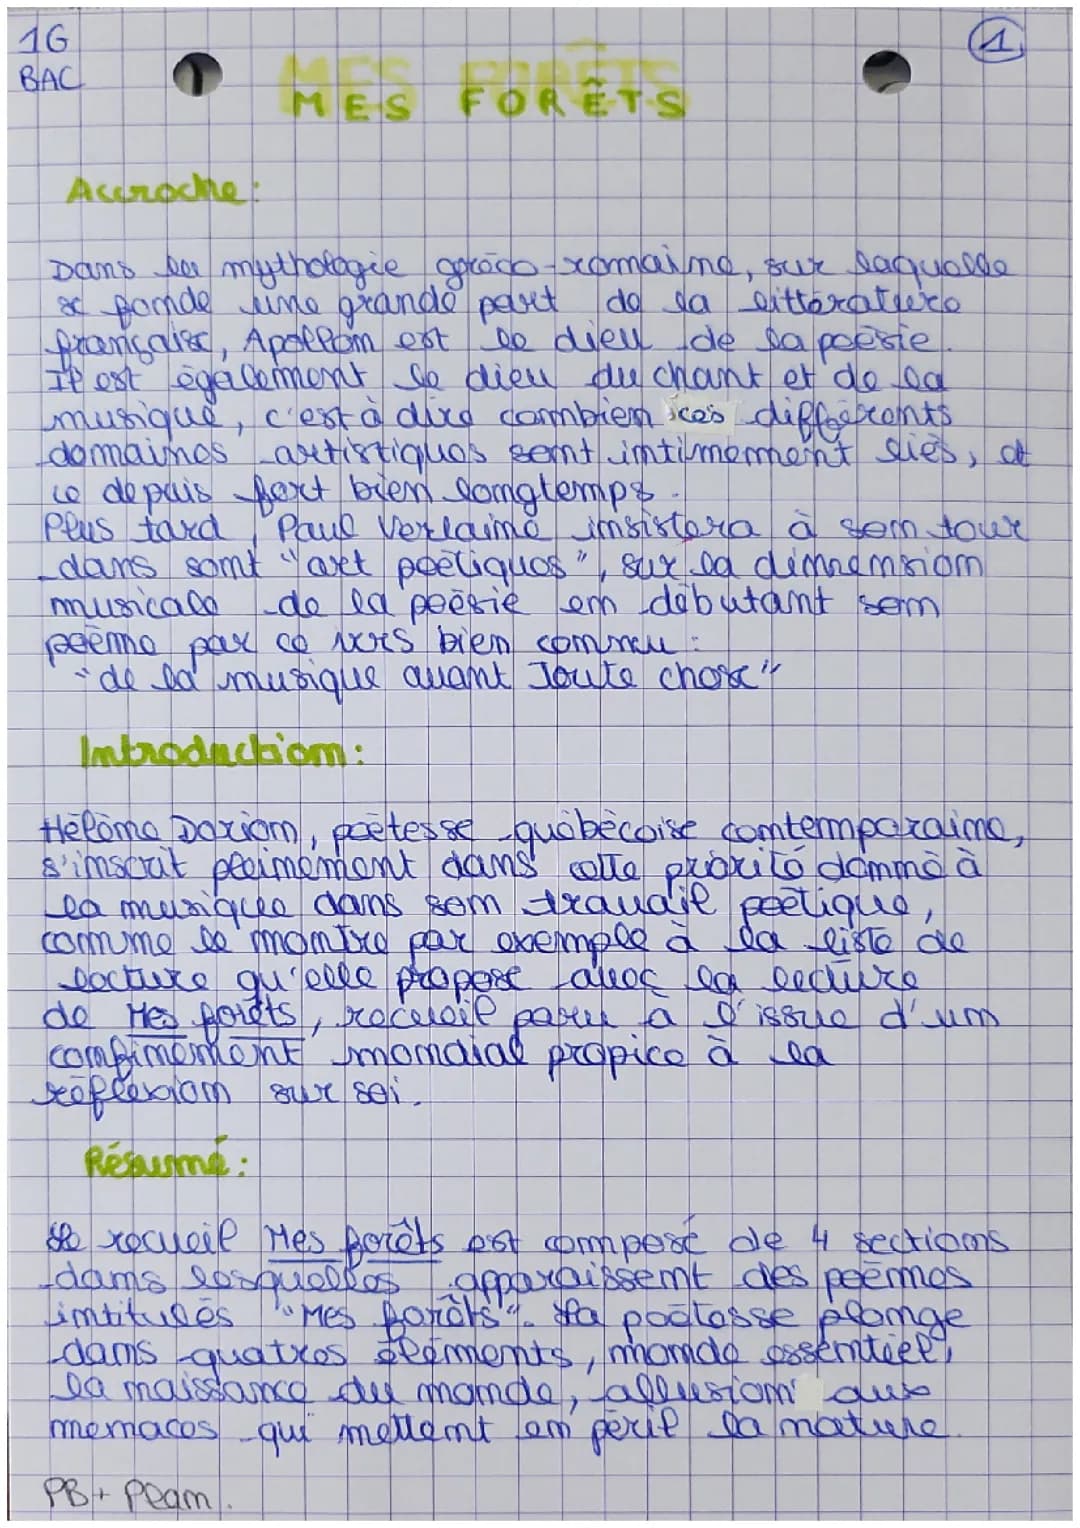 1G
①
BAC
MES FORÊTS
Accroche:
Dans la mythologie gréco-romaine, sur laquelle
se fonde une grande part de la littérature
française, Apollon est le dieu de la poésie.
Il est également le dieu du chant et de la
musique, c'est à dire combien ces différents
domaines artistiques sont intimement liés, et
ce depuis fort bien longtemps.
Plus tard, Paul Verlaine insistera à son tour
dans sont "art poétiques", sur la dimmension
musicale de la poésie en débutant son
poème par ce vers bien connu :
"de la musique avant Toute chose"
Introduction:
Hélène Dorion, poétesse québécoise comtemporaine,
s'inscrit pleinement dans cette priorité donnée à
la musique dans son travail poétique,
comme le montre par exemple à la liste de
lecture qu'elle propose avec la lecture
de Mes forêts, recueil paru à l'issue d'un
confinement mondial propice à la
réflexion sur soi.
Résumé:
Le recueil Mes forêts est composé de 4 sections
dans lesquelles apparaissent des poèmes
intitulés "Mes forêts". La poétesse plonge
dans quatres éléments, monde essentiel,
la naissance du monde, allusion aux
menaces qui mettent en péril la nature.
PB+ Plan.